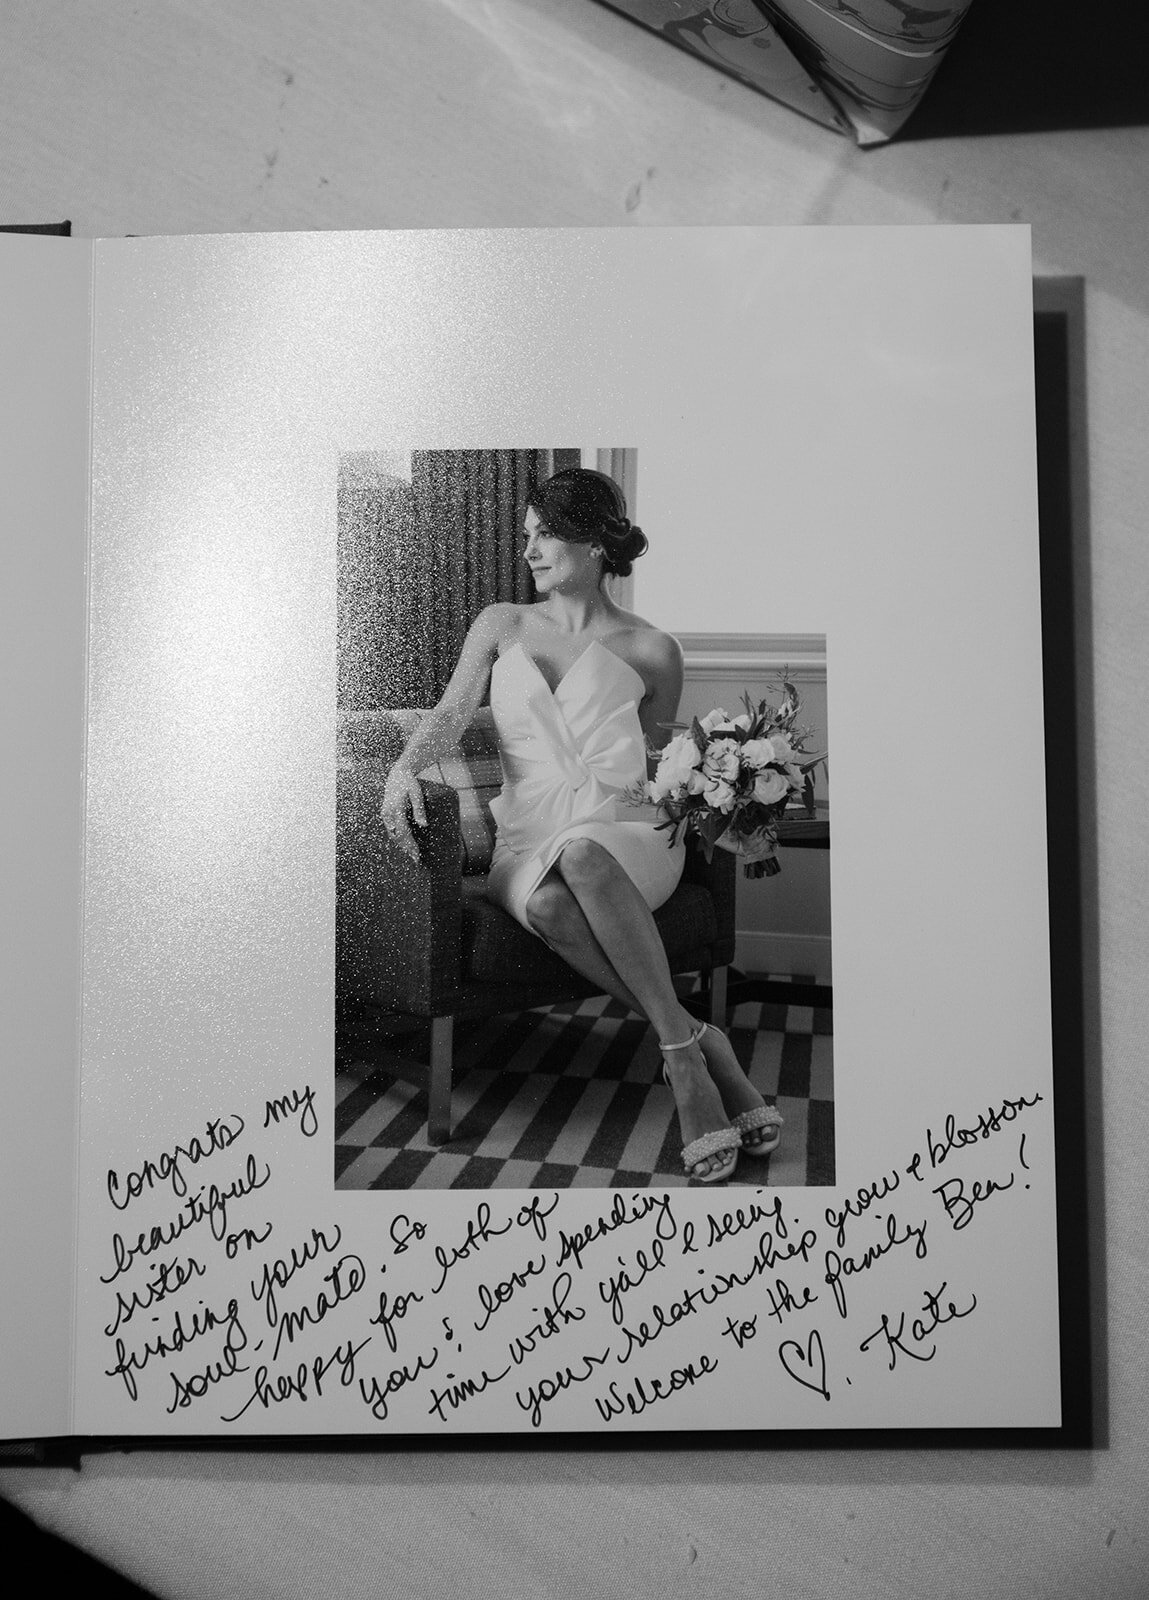 Congrats my
beautiful
sister on
finding your
soul-mate. So
happy for both of
you & love spending
time with y'all & seeing
your relationship grow & blossom.
Welcome to the family Ben!
♡. Kate